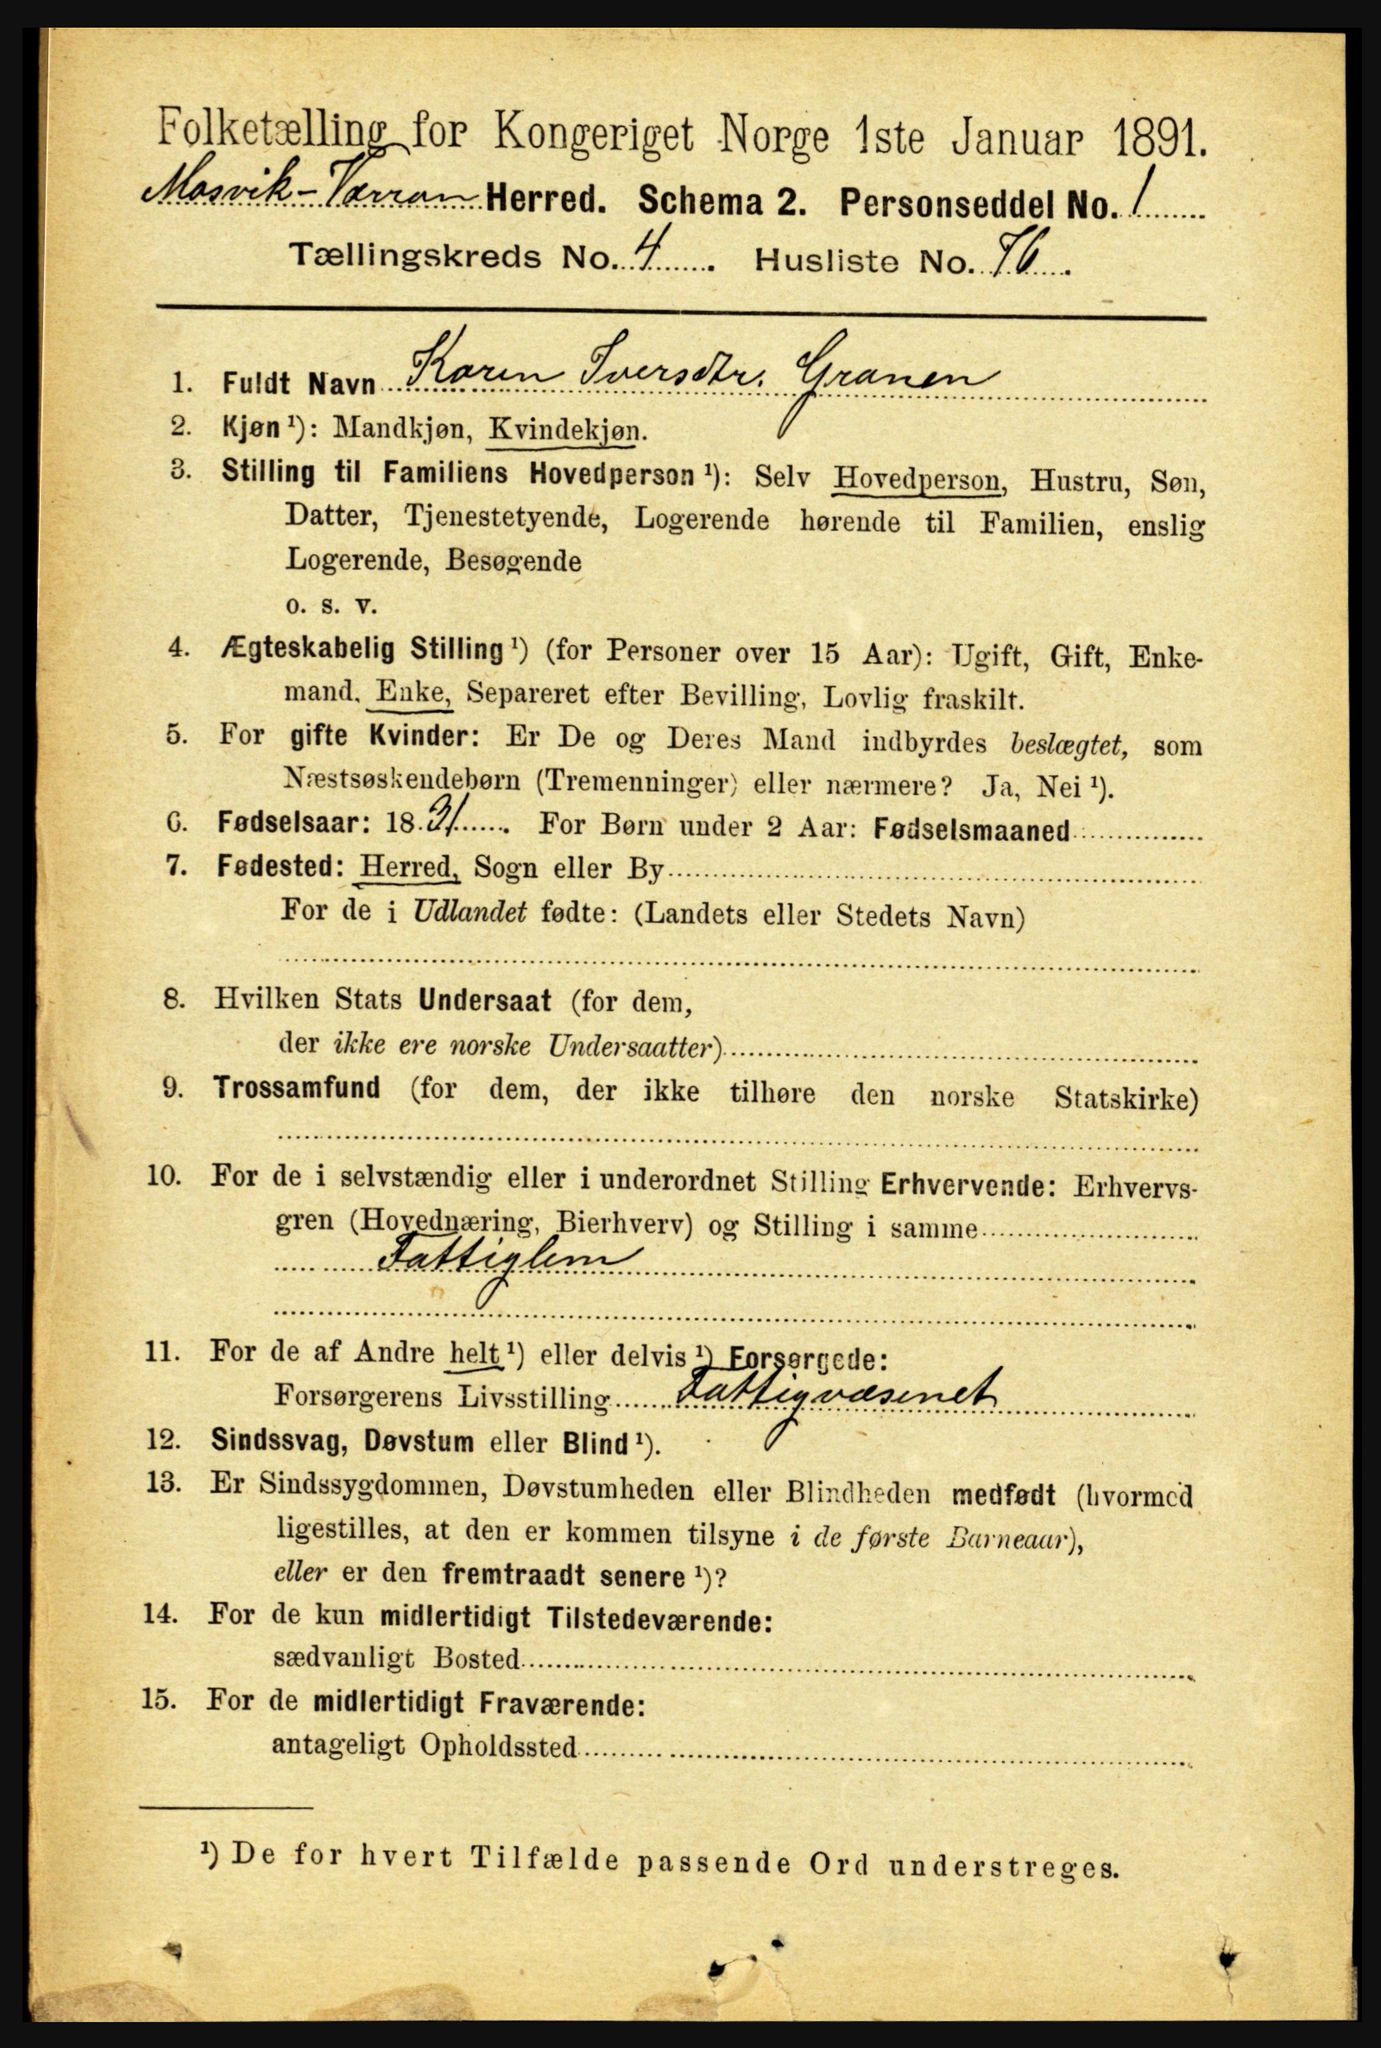 Folketælling for Kongeriget Norge 1ste Januar 1891.
Mosvik-Værran Herred. Schema 2. Personseddel No. 1
Tællingskreds No. 4. Husliste No. 76.
1. Fuldt Navn Karen Iversdtr. Granen
2. Kjøn ¹): Mandkjøn, Kvindekjøn.
3. Stilling til Familiens Hovedperson ¹): Selv Hovedperson, Hustru, Søn,
Datter, Tjenestetyende, Logerende hørende til Familien, enslig
Logerende, Besøgende
o. s. v.
4. Ægteskabelig Stilling ¹) (for Personer over 15 Aar): Ugift, Gift, Enke-
mand, Enke, Separeret efter Bevilling, Lovlig fraskilt.
5. For gifte Kvinder: Er De og Deres Mand indbyrdes beslægtet, som
Næstsøskendebørn (Tremenninger) eller nærmere? Ja, Nei ¹).
6. Fødselsaar: 1831. For Børn under 2 Aar: Fødselsmaaned
7. Fødested: Herred, Sogn eller By
For de i Udlandet fødte: (Landets eller Stedets Navn)
8. Hvilken Stats Undersaat (for dem,
der ikke ere norske Undersaatter)
9. Trossamfund (for dem, der ikke tilhøre den norske Statskirke)
10. For de i selvstændig eller i underordnet Stilling Erhvervende: Erhvervs-
gren (Hovednæring, Bierhverv) og Stilling i samme
Fattiglem
11. For de af Andre helt ¹) eller delvis ¹) Forsørgede:
Forsørgerens Livsstilling Fattigvæsenet
12. Sindssvag, Døvstum eller Blind ¹).
13. Er Sindssygdommen, Døvstumheden eller Blindheden medfødt (hvormed
ligestilles, at den er kommen tilsyne i de første Barneaar),
eller er den fremtraadt senere ¹)?
14. For de kun midlertidigt Tilstedeværende:
sædvanligt Bosted
15. For de midlertidigt Fraværende:
antageligt Opholdssted
¹) De for hvert Tilfælde passende Ord understreges.